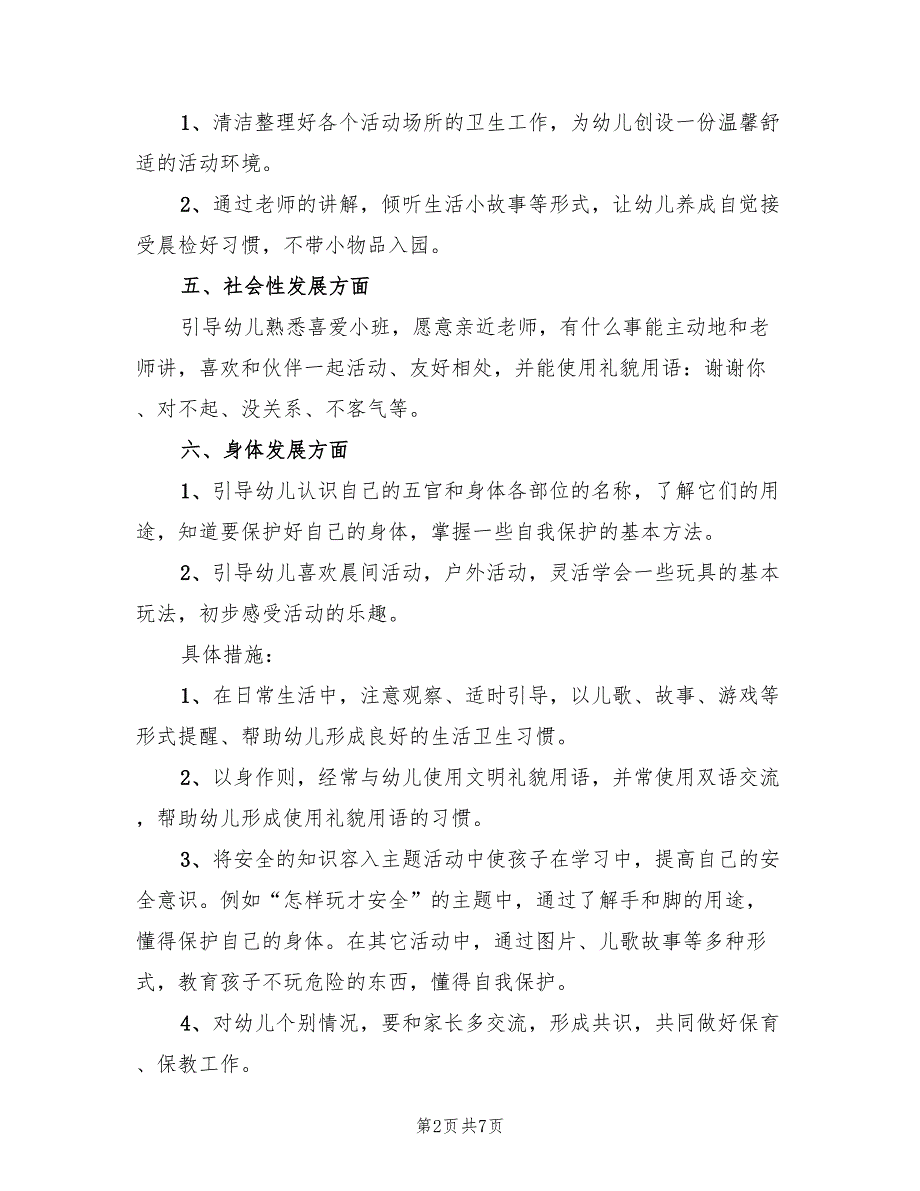 1、清洁整理好各个活动场所的卫生工作，为幼儿创设一份温馨舒
适的活动环境。
2、通过老师的讲解，倾听生活小故事等形式，让幼儿养成自觉接
受晨检好习惯，不带小物品入园。
五、社会性发展方面
引导幼儿熟悉喜爱小班，愿意亲近老师，有什么事能主动地和老
师讲，喜欢和伙伴一起活动、友好相处，并能使用礼貌用语：谢谢你
、对不起、没关系、不客气等。
六、身体发展方面
1、引导幼儿认识自己的五官和身体各部位的名称，了解它们的用
途，知道要保护好自己的身体，掌握一些自我保护的基本方法。
2、引导幼儿喜欢晨间活动，户外活动，灵活学会一些玩具的基本
玩法，初步感受活动的乐趣。
具体措施：
1、在日常生活中，注意观察、适时引导，以儿歌、故事、游戏等
形式提醒、帮助幼儿形成良好的生活卫生习惯。
2、以身作则，经常与幼儿使用文明礼貌用语，并常使用双语交流
，帮助幼儿形成使用礼貌用语的习惯。
3、将安全的知识容入主题活动中使孩子在学习中，提高自己的安
全意识。例如“怎样玩才安全”的主题中，通过了解手和脚的用途，
懂得保护自己的身体。在其它活动中，通过图片、儿歌故事等多种形
式，教育孩子不玩危险的东西，懂得自我保护。
4、对幼儿个别情况，要和家长多交流，形成共识，共同做好保育
、保教工作。
第2页共7页